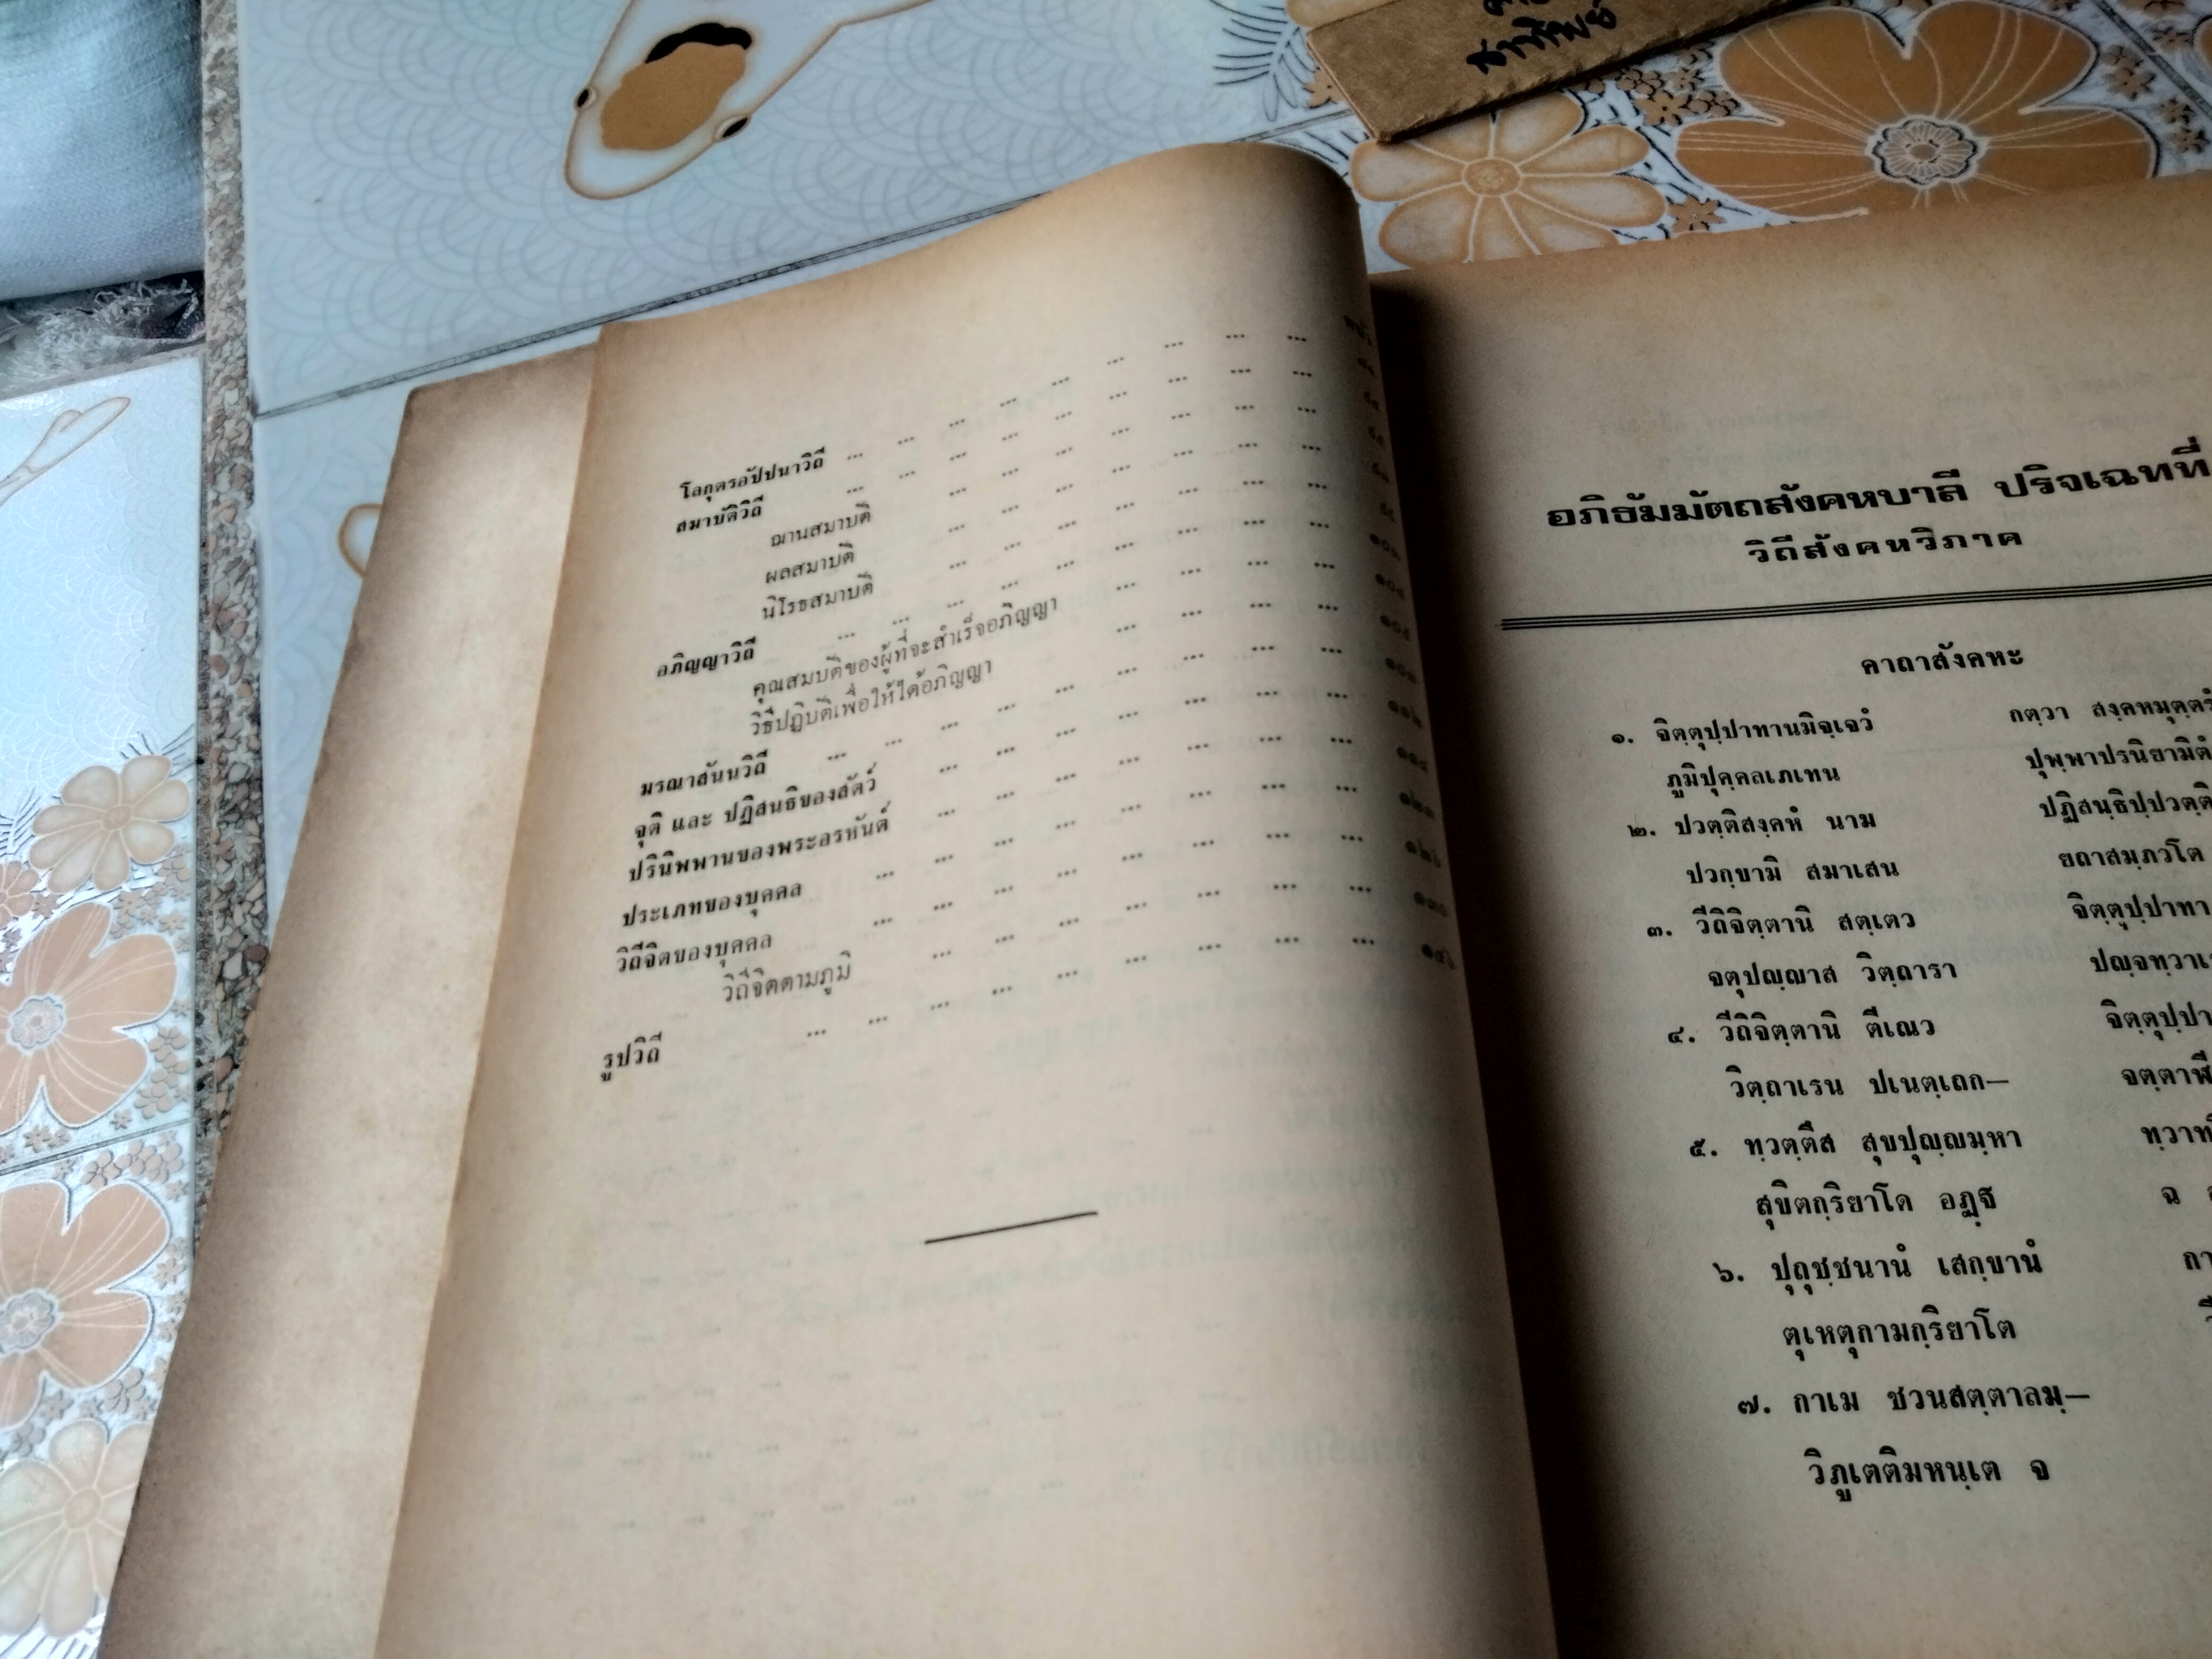 โลกุตรอัปปนาวิถี ... ... ... ... ... ... ... ... ...
สมาบัติวิถี ... ... ... ... ... ... ... ... ...
ฌานสมาบัติ ... ... ... ... ... ... ...
ผลสมาบัติ ... ... ... ... ... ... ...
นิโรธสมาบัติ ... ... ... ... ... ... ...
อภิญญาวิถี ... ... ... ... ... ... ... ... ...
คุณสมบัติของผู้ที่จะสำเร็จอภิญญา ... ... ... ...
วิธีปฏิบัติเพื่อให้ได้อภิญญา ... ... ... ...
มรณาสันนวิถี ... ... ... ... ... ... ... ... ...
จุติ และ ปฏิสนธิของสัตว์ ... ... ... ... ... ... ...
ปรินิพพานของพระอรหันต์ ... ... ... ... ... ... ...
ประเภทของบุคคล ... ... ... ... ... ... ... ...
วิถีจิตของบุคคล ... ... ... ... ... ... ... ...
วิถีจิตตามภูมิ ... ... ... ... ... ... ...
รูปวิถี ... ... ... ... ... ... ... ... ... ๑๔๖
อภิธัมมัตถสังคหบาลี ปริจเฉทที่
วิถีสังคหวิภาค
คาถาสังคหะ
๑. จิตฺตุปฺปาทานมิจฺเจวํ กตฺวา สงฺคหมุตฺตรํ
ภูมิปุคฺคลเภเทน ปุพฺพาปรนิยามิตํ
๒. ปวตฺติสงฺคหํ นาม ปฏิสนฺธิปฺปวตฺติ
ปวกฺขามิ สมาเสน ยถาสมฺภวโต
๓. วีถิจิตฺตานิ สตฺเตว จิตฺตุปฺปาทา
จตุปญฺญาส วิตฺถารา ปญฺจทฺวาเ
๔. วีถิจิตฺตานิ ตีเณว จิตฺตุปฺปา
วิตฺถาเรน ปเนตฺเถก— จตฺตาฬี
๕. ทฺวตฺตึส สุขปุญฺญมฺหา ทฺวาท
สุขิตกฺริยาโต อฏฺฐ ฉ
๖. ปุถุชฺชนานํ เสกฺขานํ กา
ติเหตุกามกฺริยาโต
๗. กาเม ชวนสตฺตาลมฺ—
วิภูเตติมหนฺเต จ